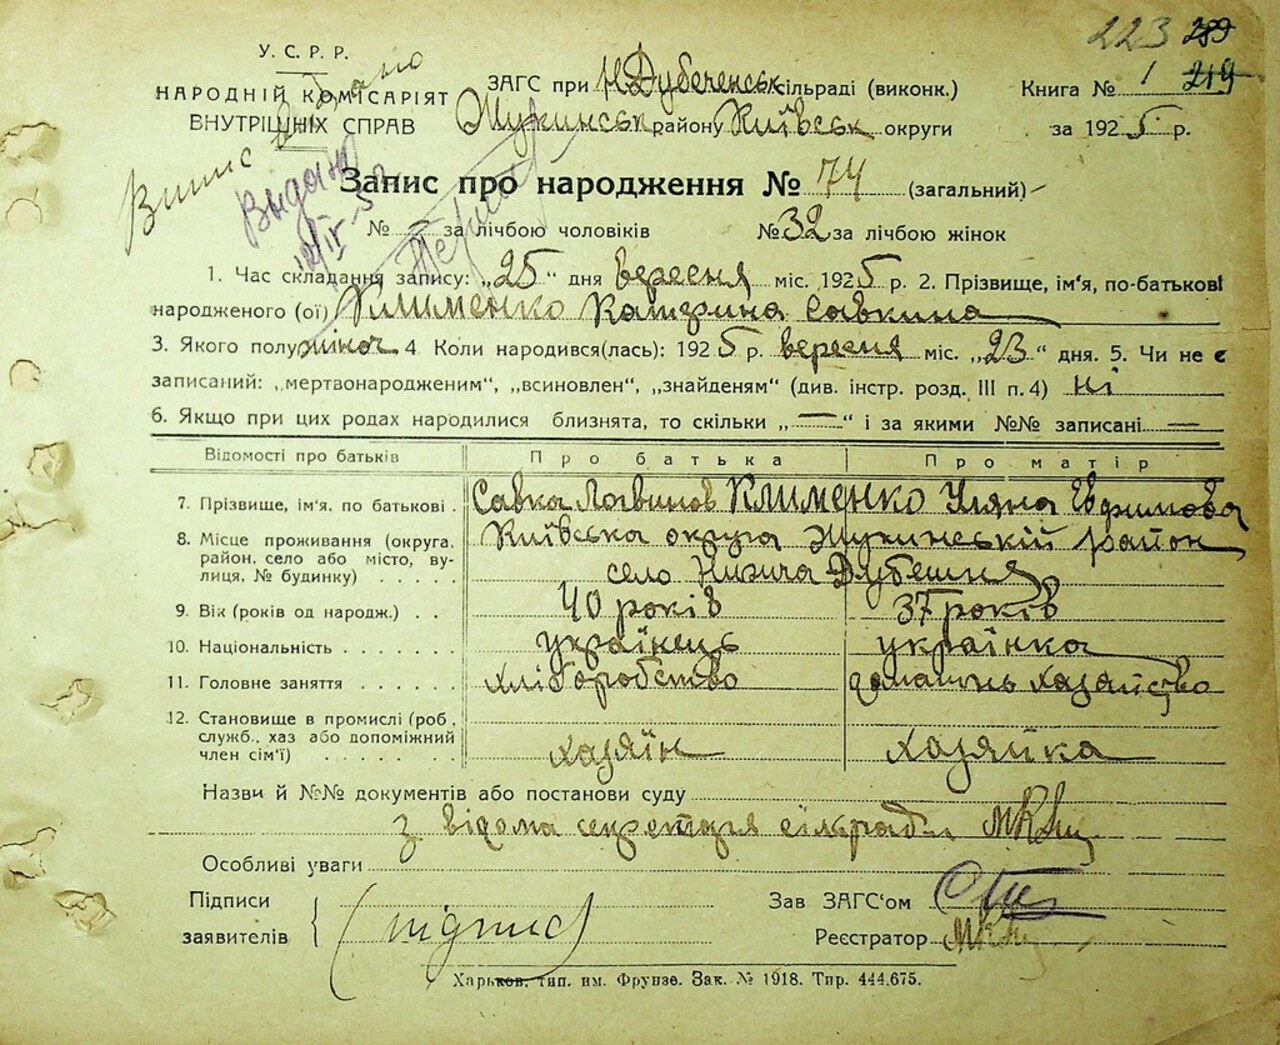 223 289
У. С. Р. Р.
НАРОДНІЙ КОМІСАРІЯТ
ВНУТРІШНІХ СПРАВ
Випис видано
Выдано
12/IX-5
ЗАГС при Н Дубеченськ сільраді (виконк.)
Книга № 1 219
Жукинськ району Київськ округи
за 1925 р.
Запис про народження № 74 (загальний)
№ — за лічбою чоловіків
№ 32 за лічбою жінок
1. Час складання запису: „25“ дня вересня міс. 1925 р. 2. Прізвище, ім‘я, по-батькові
народженого (ої) Клименко Катерина Савкина
3. Якого полу жіноч 4 Коли народився(лась): 1925 р. вересня міс. „23“ дня. 5. Чи не є
записаний: „мертвонародженим“, „всиновлен“, „знайденям“ (див. інстр. розд. III п. 4) ні
6. Якщо при цих родах народилися близнята, то скільки „—“ і за якими №№ записані —
Відомості про батьків
Про батька
Про матір
7. Прізвище, ім‘я, по батькові .
Савка Логвинов Клименко Уляна Евфимова
8. Місце проживання (округа,
район, село або місто, ву-
лиця, № будинку) . . . . .
Київська округа Жукинській район
село Нижча Дубешня
9. Вік (років од народж.) . .
40 років
37 років
10. Національність . . . . . . .
українець
українка
11. Головне заняття . . . . . .
хліборобство
домашнь хазайство
12. Становище в промислі (роб.,
служб., хаз або допоміжний
член сім‘ї) . . . . . . . .
хазяїн
хазяйка
Назви й №№ документів або постанови суду
з відома секретаря сільради
Особливі уваги
Підписи
заявителів
(підпис)
Зав ЗАГС‘ом
Реєстратор
Харьков, тип. им. Фрунзе. Зак. № 1918. Тир. 444.675.